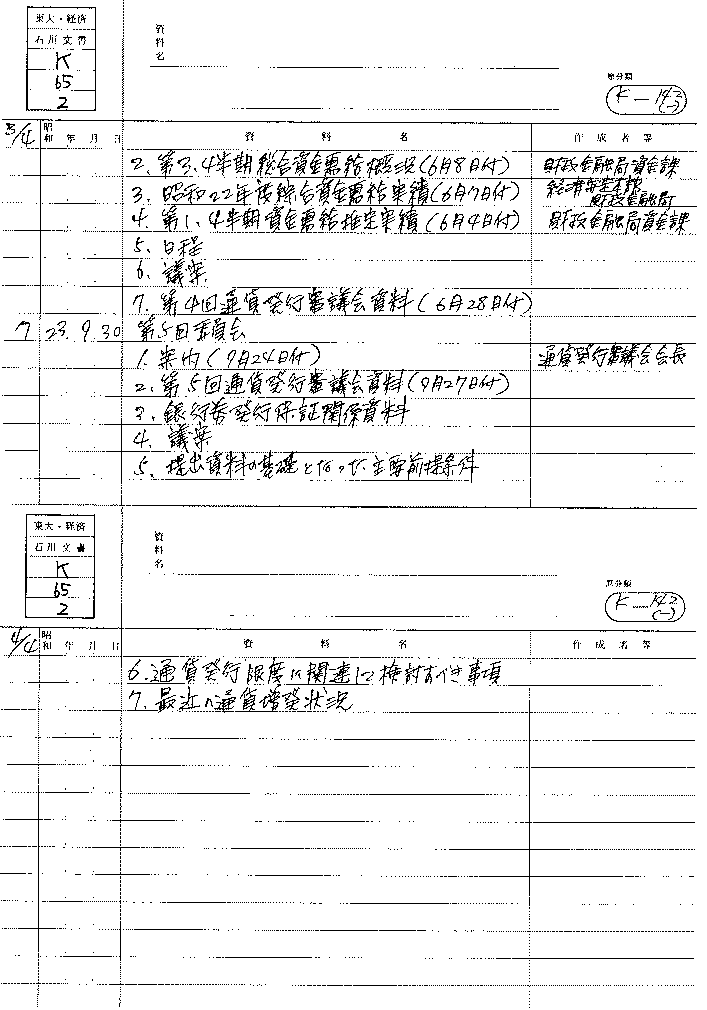 東大・経済
石川文書
K
65
2
資料名
原分類
K-142
(-)
3/4
昭和 年 月 日
資 料 名
作 成 者 等
2. 第3.4半期総合資金需給概況(6月8日付) 財政金融局資金課
3. 昭和22年度綜合資金需給実績(6月7日付) 経済安定本部 財政金融局
4. 第1.4半期資金需給推定実績(6月4日付) 財政金融局資金課
5. 日程
6. 議案
7. 第4回通貨発行審議会資料(6月28日付)
7 23. 9. 30 第5回委員会
1. 案内(9月24日付) 通貨発行審議会会長
2. 第5回通貨発行審議会資料(9月27日付)
3. 銀行券発行保証関係資料
4. 議案
5. 提出資料の基礎となった主要前提条件
東大・経済
石川文書
K
65
2
資料名
原分類
K-142
(-)
4/4
昭和 年 月 日
資 料 名
作 成 者 等
6. 通貨発行限度に関連して検討すべき事項
7. 最近の通貨増発状況